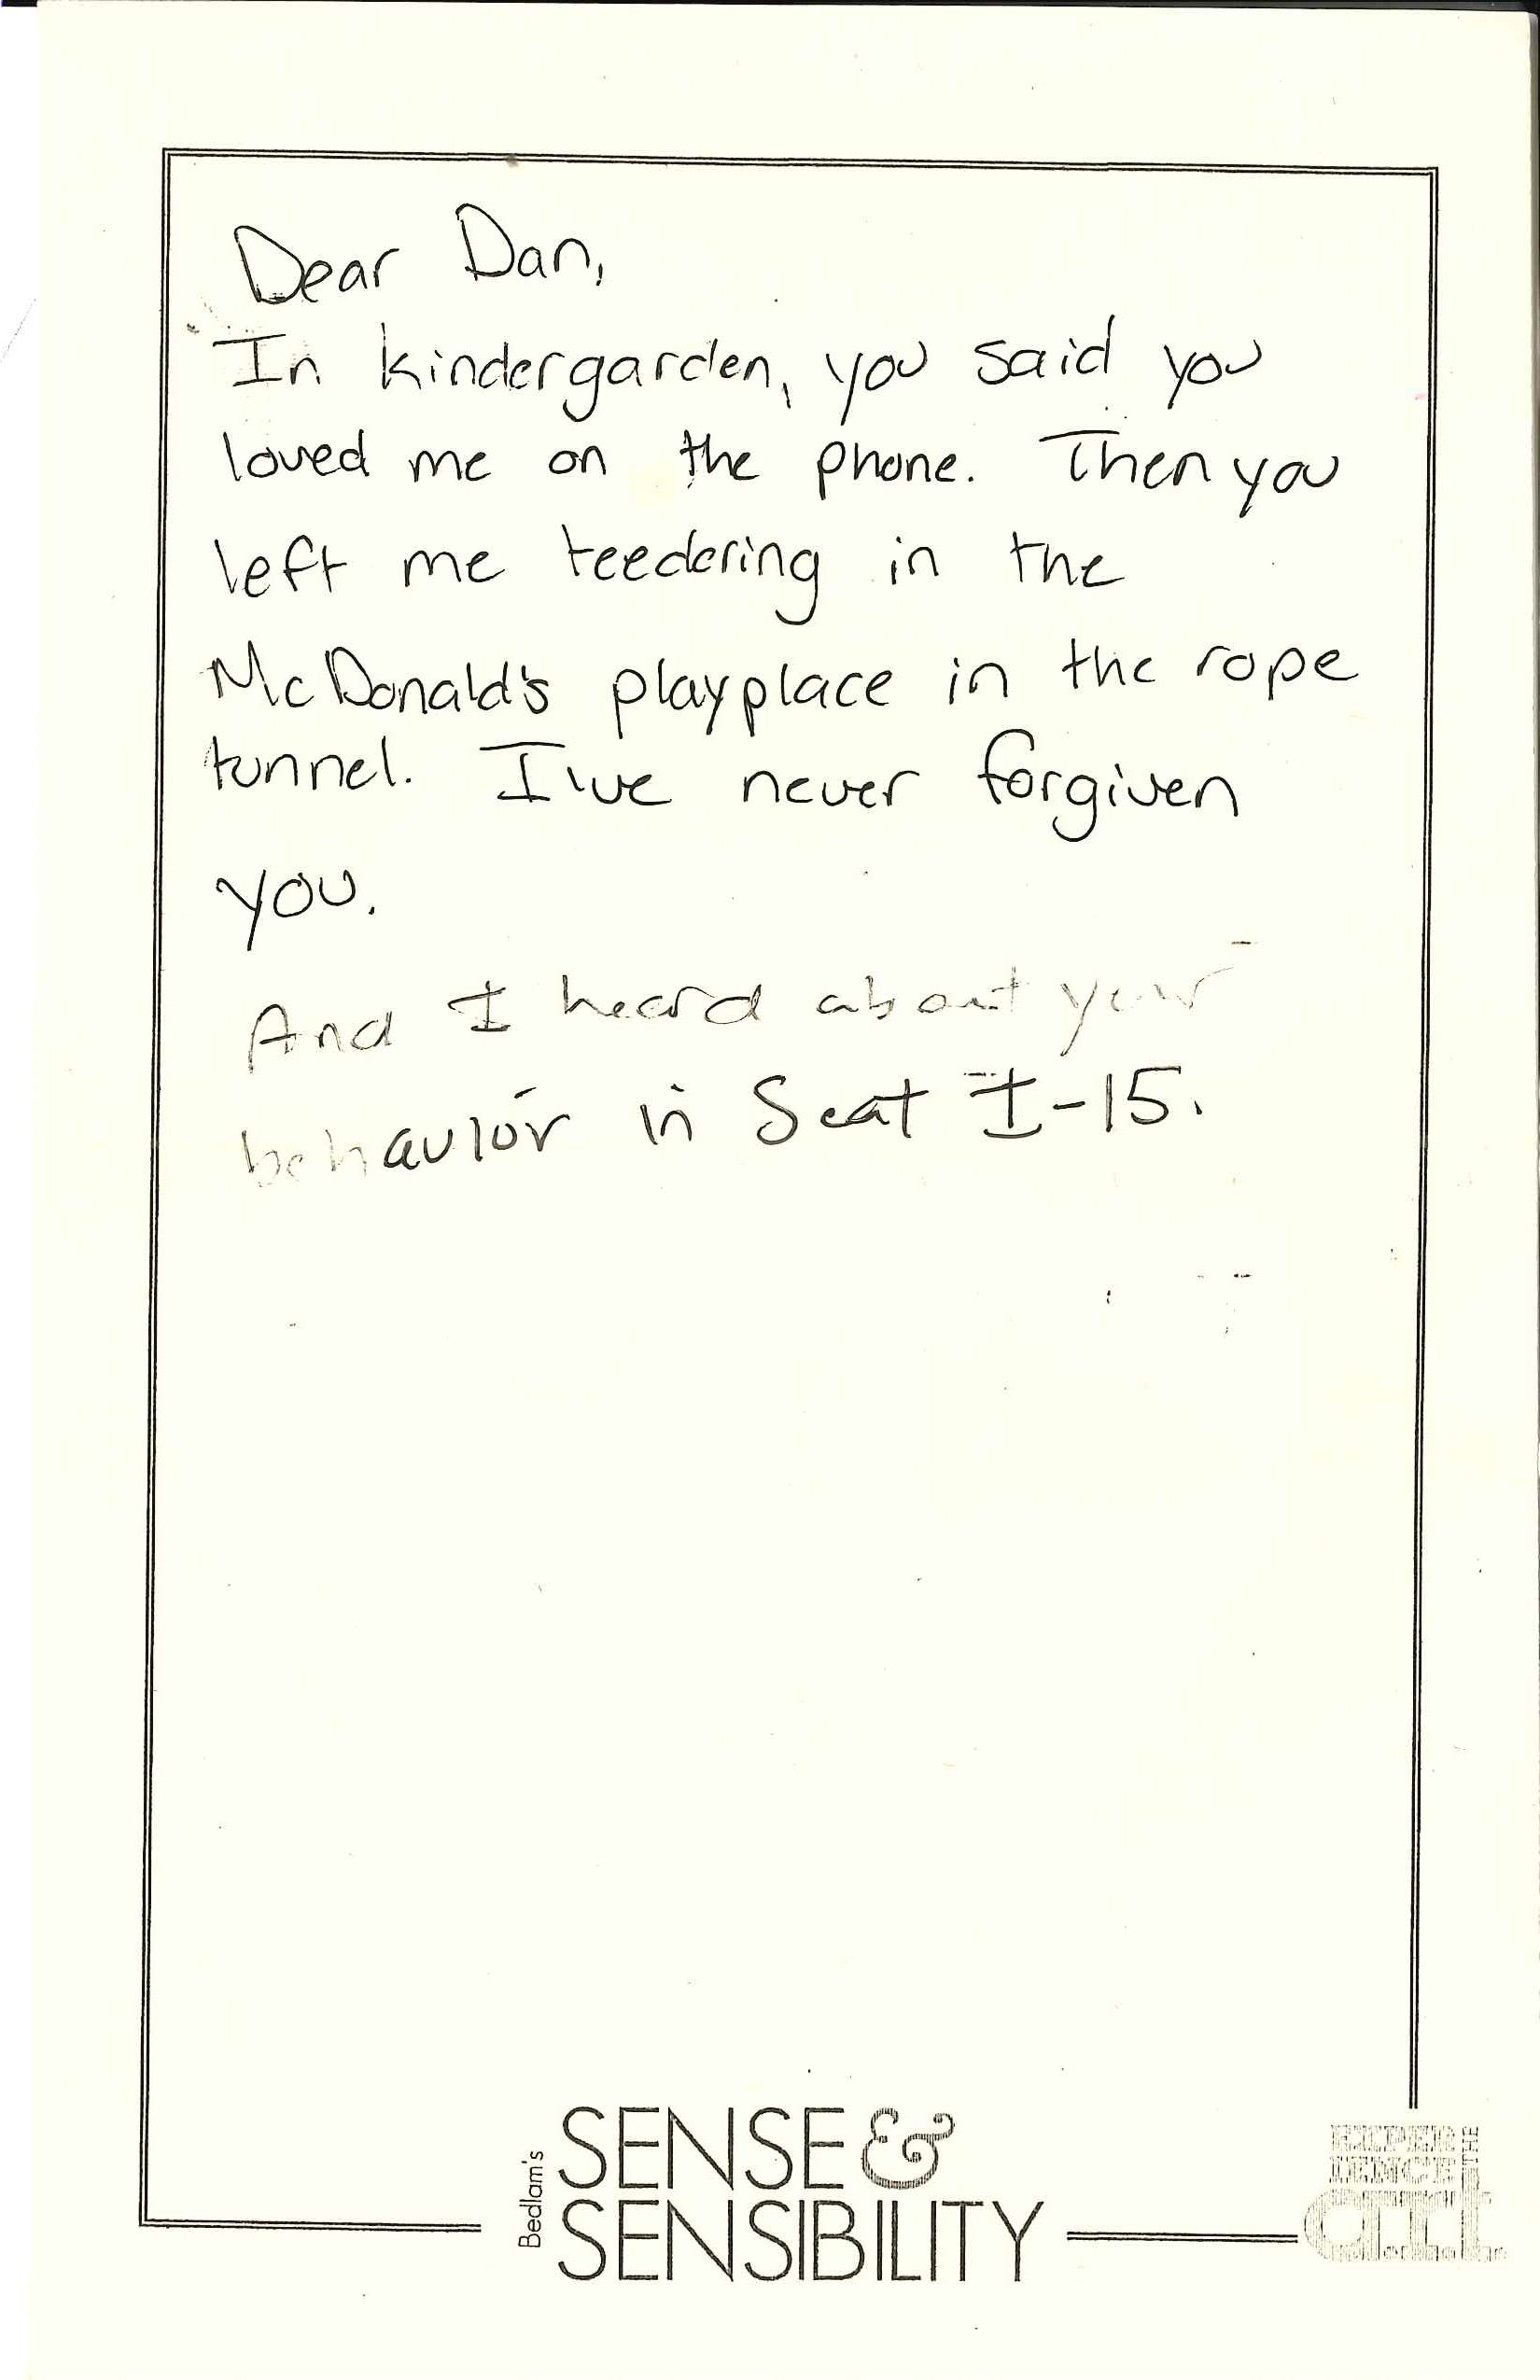 Dear Dan,
In kindergarden, you said you
loved me on the phone. Then you
left me teedering in the
McDonald's playplace in the rope
tunnel. I've never forgiven
you.
And I heard about your
behavior in Seat I-15.
Bedlam's
SENSE &
SENSIBILITY
EXPER
IENCE THE
a.r.t.